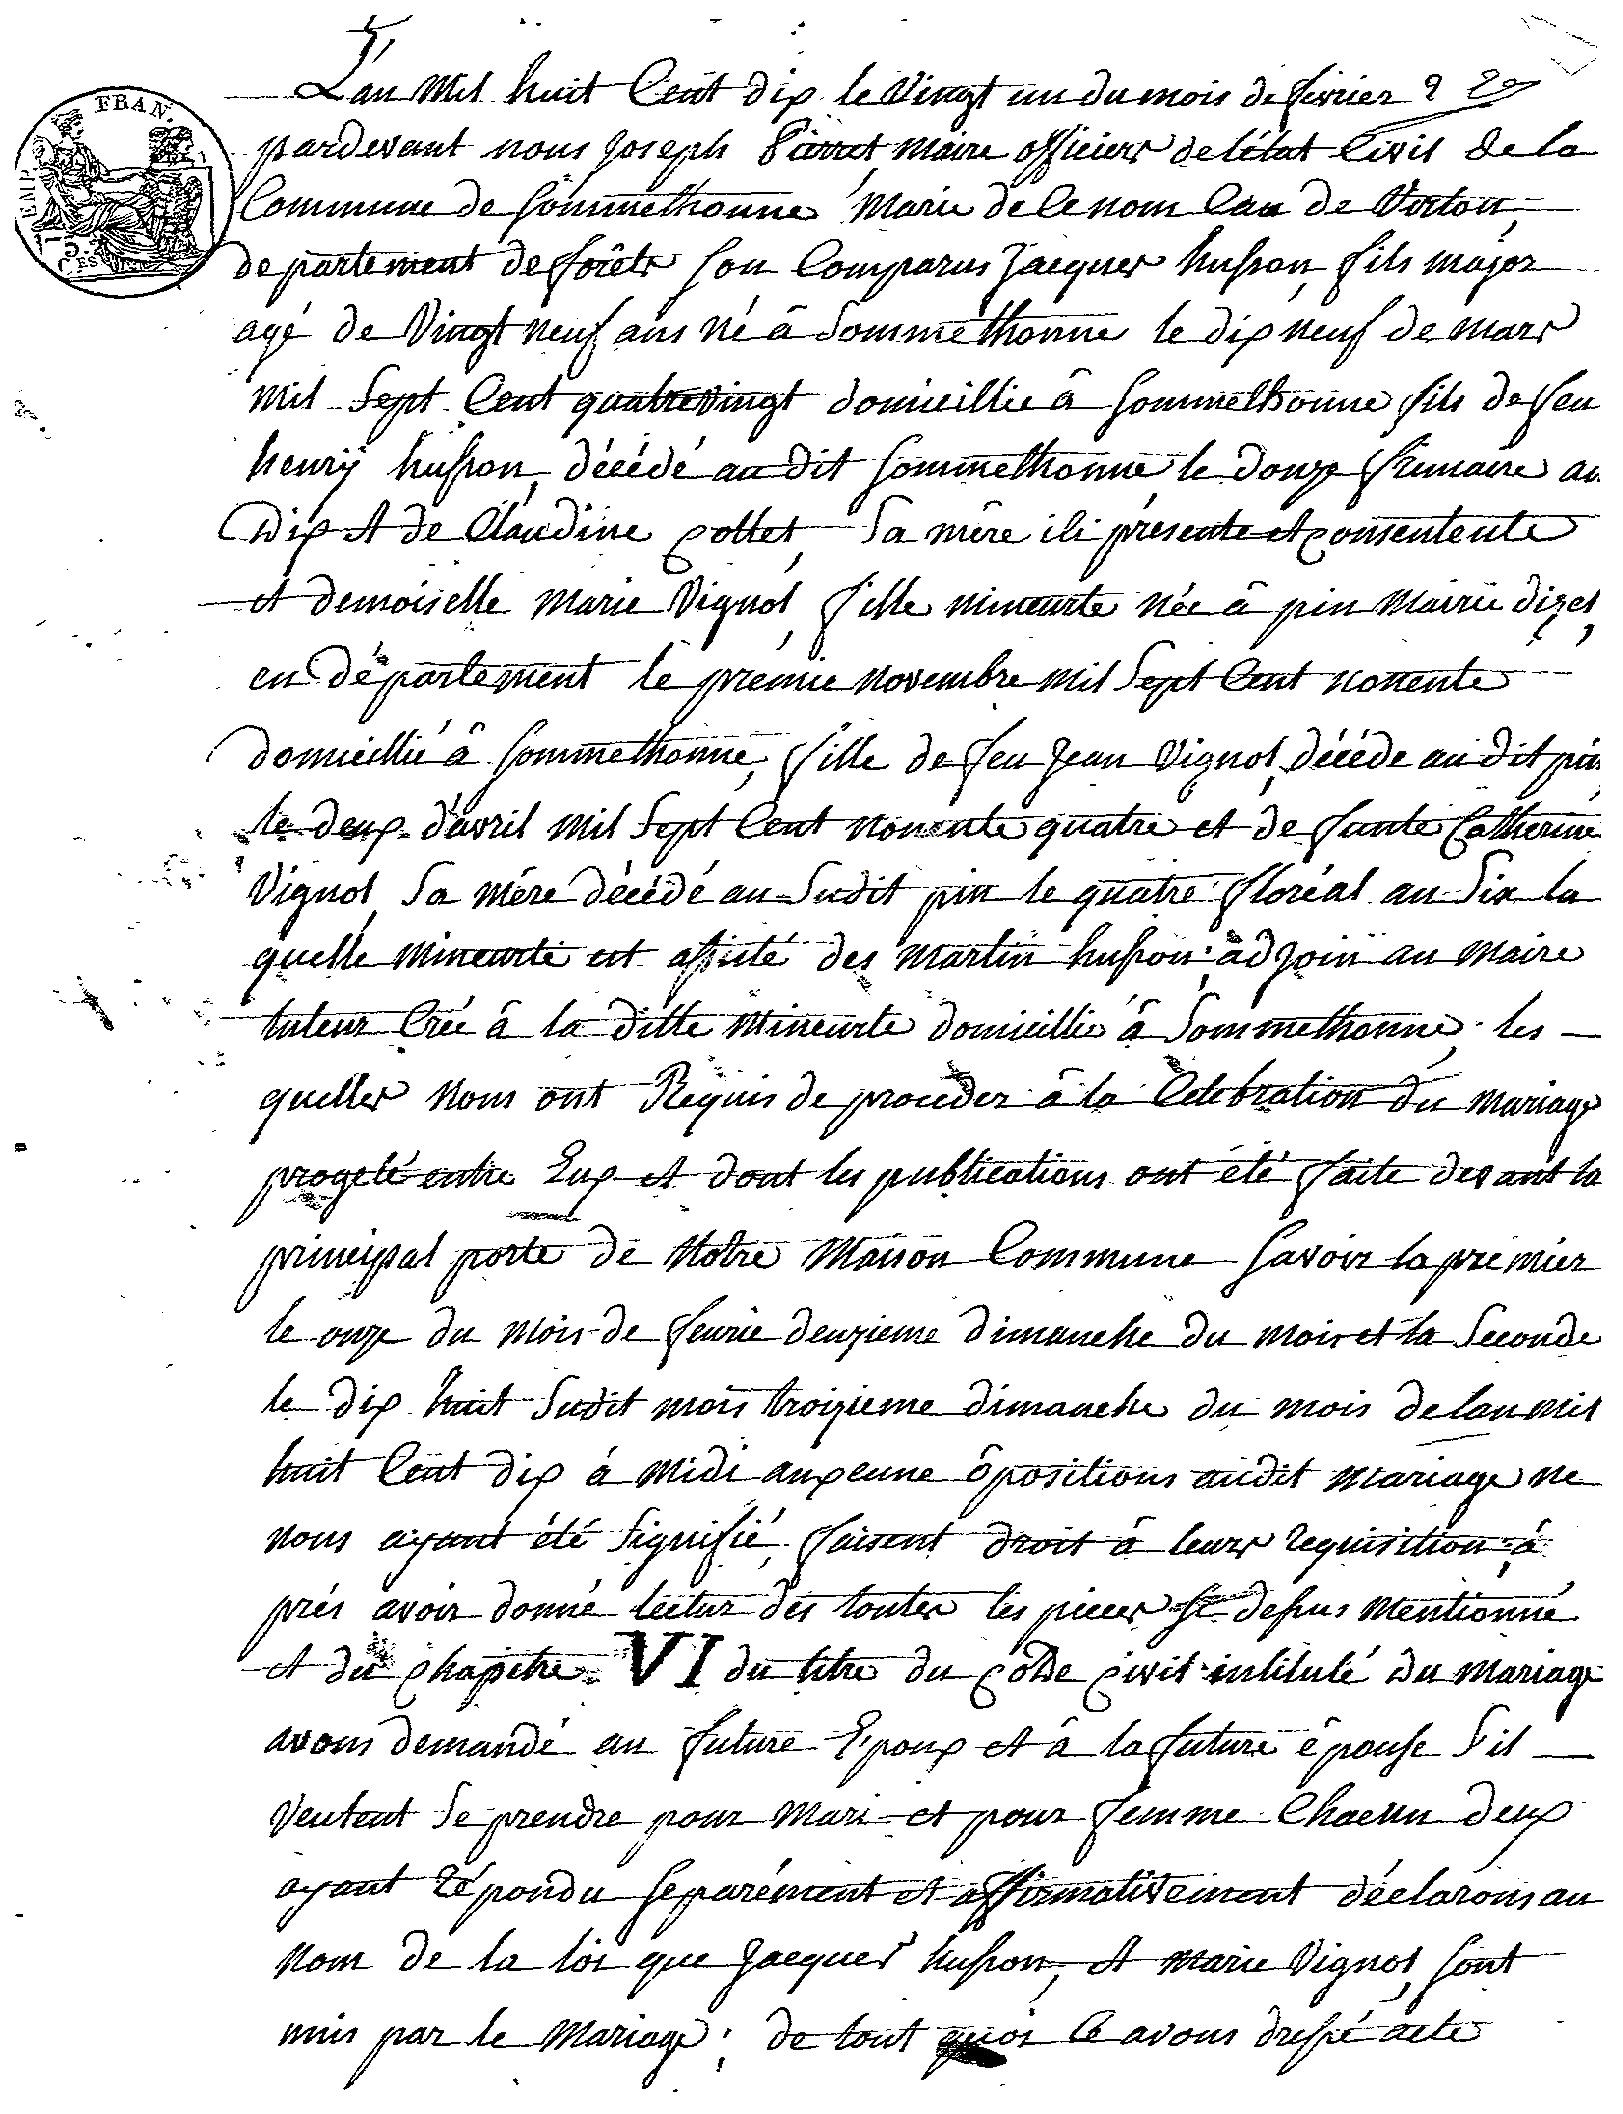 FRAN.
EMP.
L'an Mil huit Cent dix le Vingt un du mois de fevrier
pardevant nous Joseph Pierret maire officiers de l'état Civil de la
Commune de Sommethonne Marie de Ce nom Can de Virton,
departement de forêts son Comparus Jacques husson, fils major
agé de Vingt neuf ans né â Sommethonne le dix neuf de mars
mil Sept Cent quatrevingt domicillie â Sommethonne fils de feu
henrÿ husson, décédé au dit Sommethonne le douze frimaire an
Dix et de Claudine collet, Sa mére ili présente et consentente
et demoiselle Marie Vignol, fille mineurte née â pin Mairie dizel,
en département le premie novembre mil Sept Cent nonente
domicillié â Sommethonne, fille de feu Jean Vignol, décéde au dit pin
le deux d'avril mil Sept Cent nonente quatre et de funte Catherine
Vignol, Sa mére décédé au Sudit pin le quatre floréal an Six la
quelle mineurte est assisté des Martin husson, adjoin au Maire
tuteur Créé â la ditte Mineurte domicillie â Sommethonne, les
quelles Nous ont Requis de proceder â la Celebration du mariage
progeté entre Eux et dont les publications ont été faite devant la
principal porte de Notre Maison Commune Savoir la premier
le onze du Mois de feuvrie deuzieme dimanche du mois et la Seconde
le dix huit Sudit mois troizieme dimanche du mois de lan mil
huit Cent dix à Midi auxcune ôpositions audit Mariage ne
nous ayant été Signifié, faisent droit â leurs requisition, â
prés avoir donné lectur des toutes les pieces si dessus Mentionné
et du chapitre VI du titre du code civil intitulé Du Mariage
avons demandé au future Epoux et â la future épouse S'il
Veulent Se prendre pour Mari et pour femme Chacun deux
ayant répondu separément et affirmativement déclarons au
Nom de la loi que Jacques husson, et Marie Vignol, sont
unis par le Mariage; de tout quoi Ce avons dressé acte